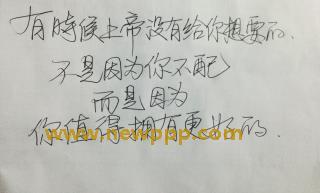 有時候上帝没有给你想要的.
不是因为你不配
而是因为
你值得拥有更好的.
www.newppp.com